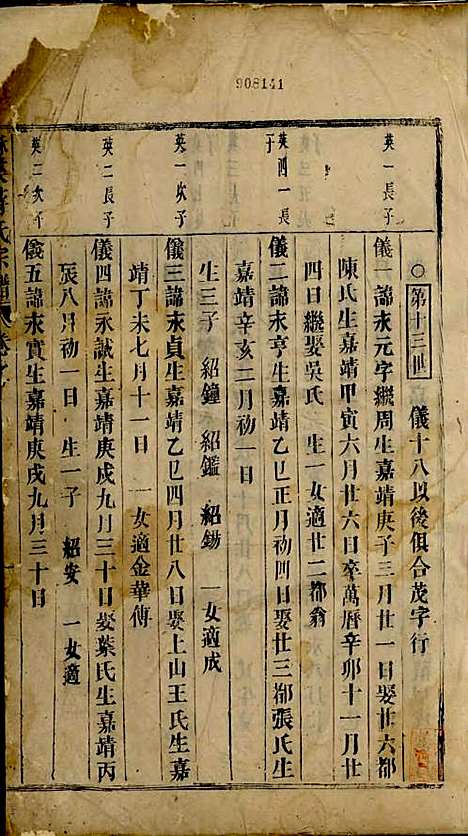 908141
○第十三世 儀十八以後俱合茂字行
英一長子
儀一諱永元字繼周生嘉靖庚子三月廿一日娶廿六都
陳氏生嘉靖甲寅六月廿六日卒萬曆辛卯十一月廿
四日繼娶吳氏 生一女適廿二都翁
英四一長子
儀二諱永亨生嘉靖乙巳正月初四日娶廿三都張氏生
嘉靖辛亥二月初一日
生三子 紹鐘 紹鑑 紹鍚 一女適成
英一次子
儀三諱永貞生嘉靖乙巳四月廿八日娶上山王氏生嘉
靖丁未七月十一日 一女適金華傅
英二長子
儀四諱永誠生嘉靖庚戌九月三十日娶葉氏生嘉靖丙
辰八月初一日 生一子 紹安 一女適
英二次子
儀五諱永實生嘉靖庚戌九月三十日